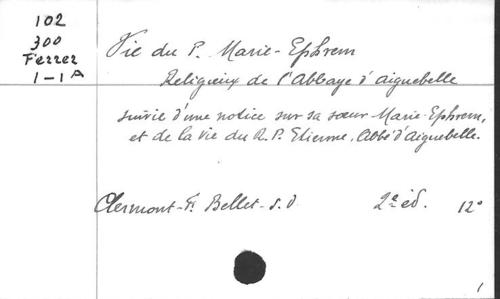 102
300
Ferrer
1-1A
Vie du P. Marie-Ephrem
Religieux de l'Abbaye d'Aiguebelle
suivie d'une notice sur sa sœur Marie-Ephrem,
et de la vie du R.P. Etienne, Abbé d'Aiguebelle.
Clermont-F. Bellet-s.d. 2e éd. 12°
1